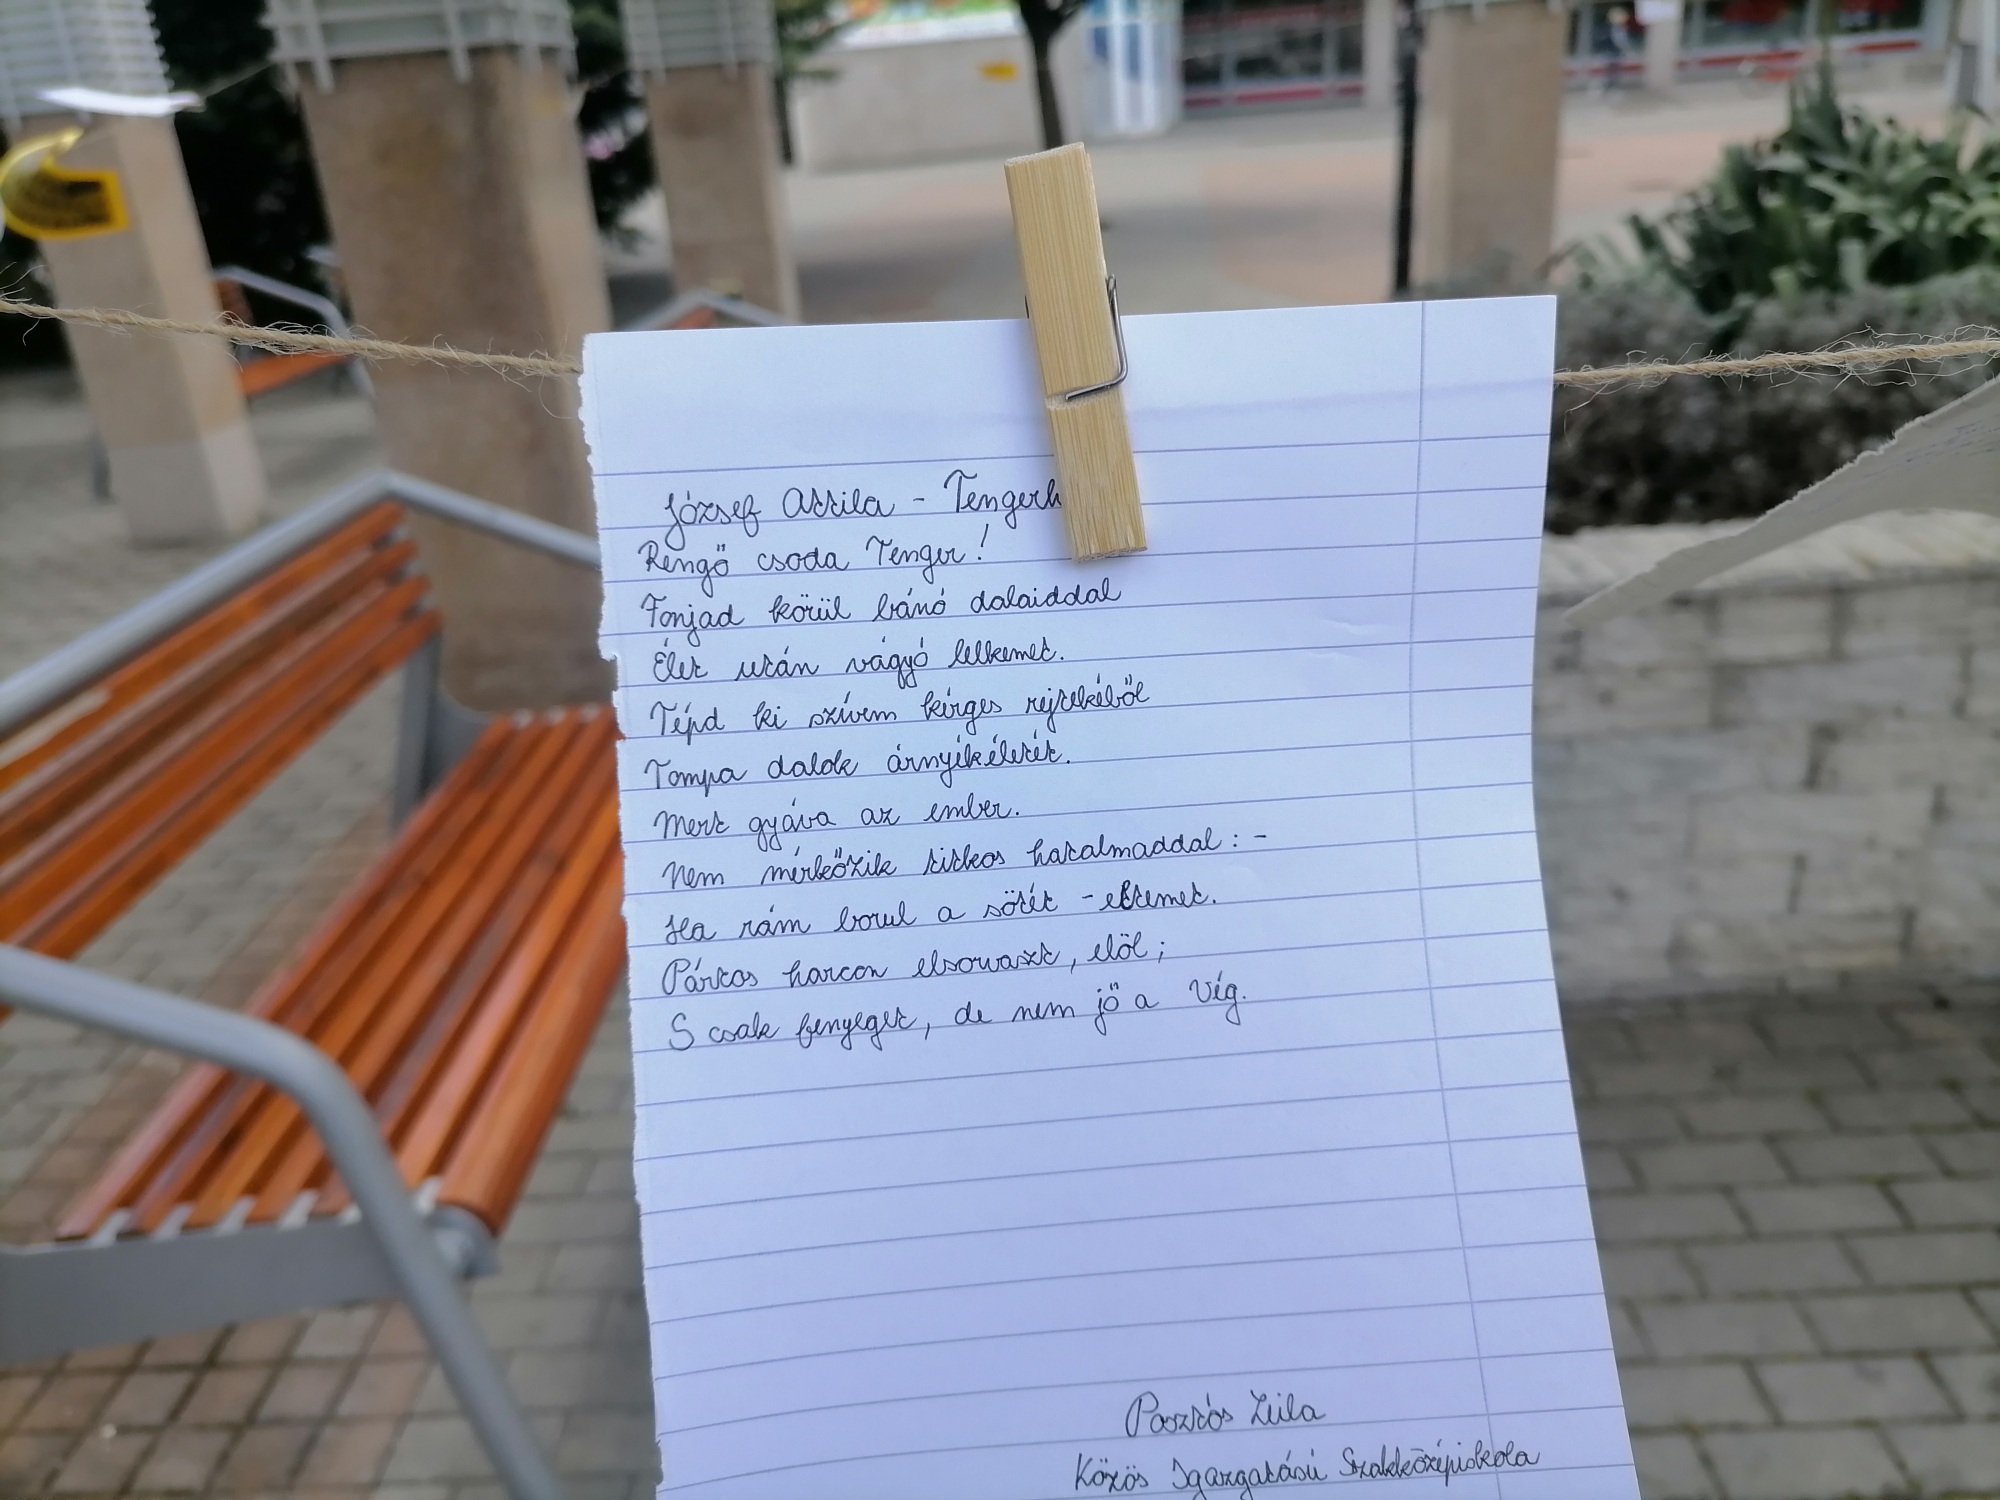 József Attila - Tengerh
Rengő csoda Tenger!
Fonjad körül bánó dalaiddal
Élet után vágyó lelkemet.
Tépd ki szívem kérges rejtekéből
Tompa dalok árnyékéletét.
Mert gyáva az ember.
Nem mérkőzik titkos hatalmaddal: -
Ha rám borul a sötét - eltemet.
Pártos harcon elsorvaszt, elöl;
S csak fenyeget, de nem jő a Vég.
Pasztós Leila
Közös Igazgatású Szakközépiskola